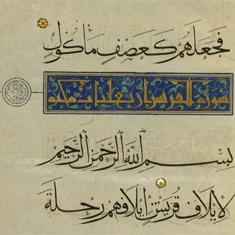 فجعلهم كعصف مأكول
سورة
بسم الله الرحمن الرحيم
لإيلاف قريش إيلافهم رحلة